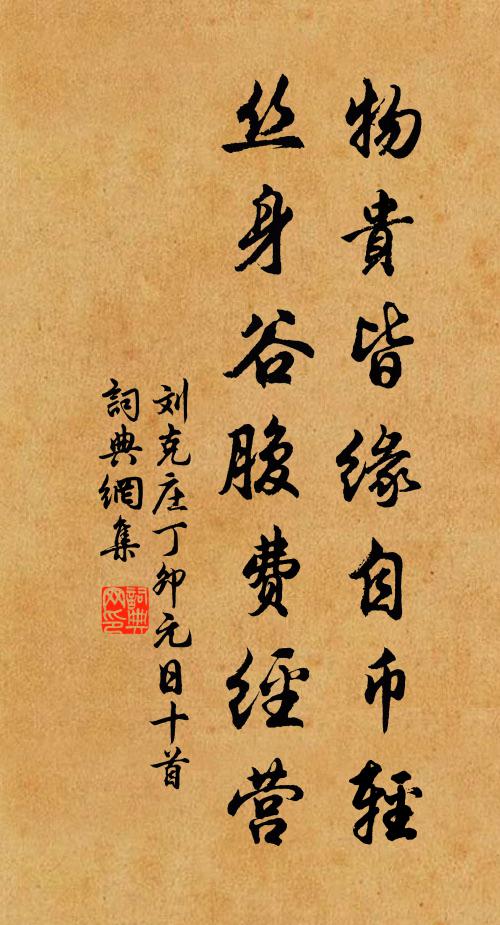 物貴皆緣自币輕
丝身谷腹费經营
刘克庄丁卯元日十首
詞典網集
詞典网印